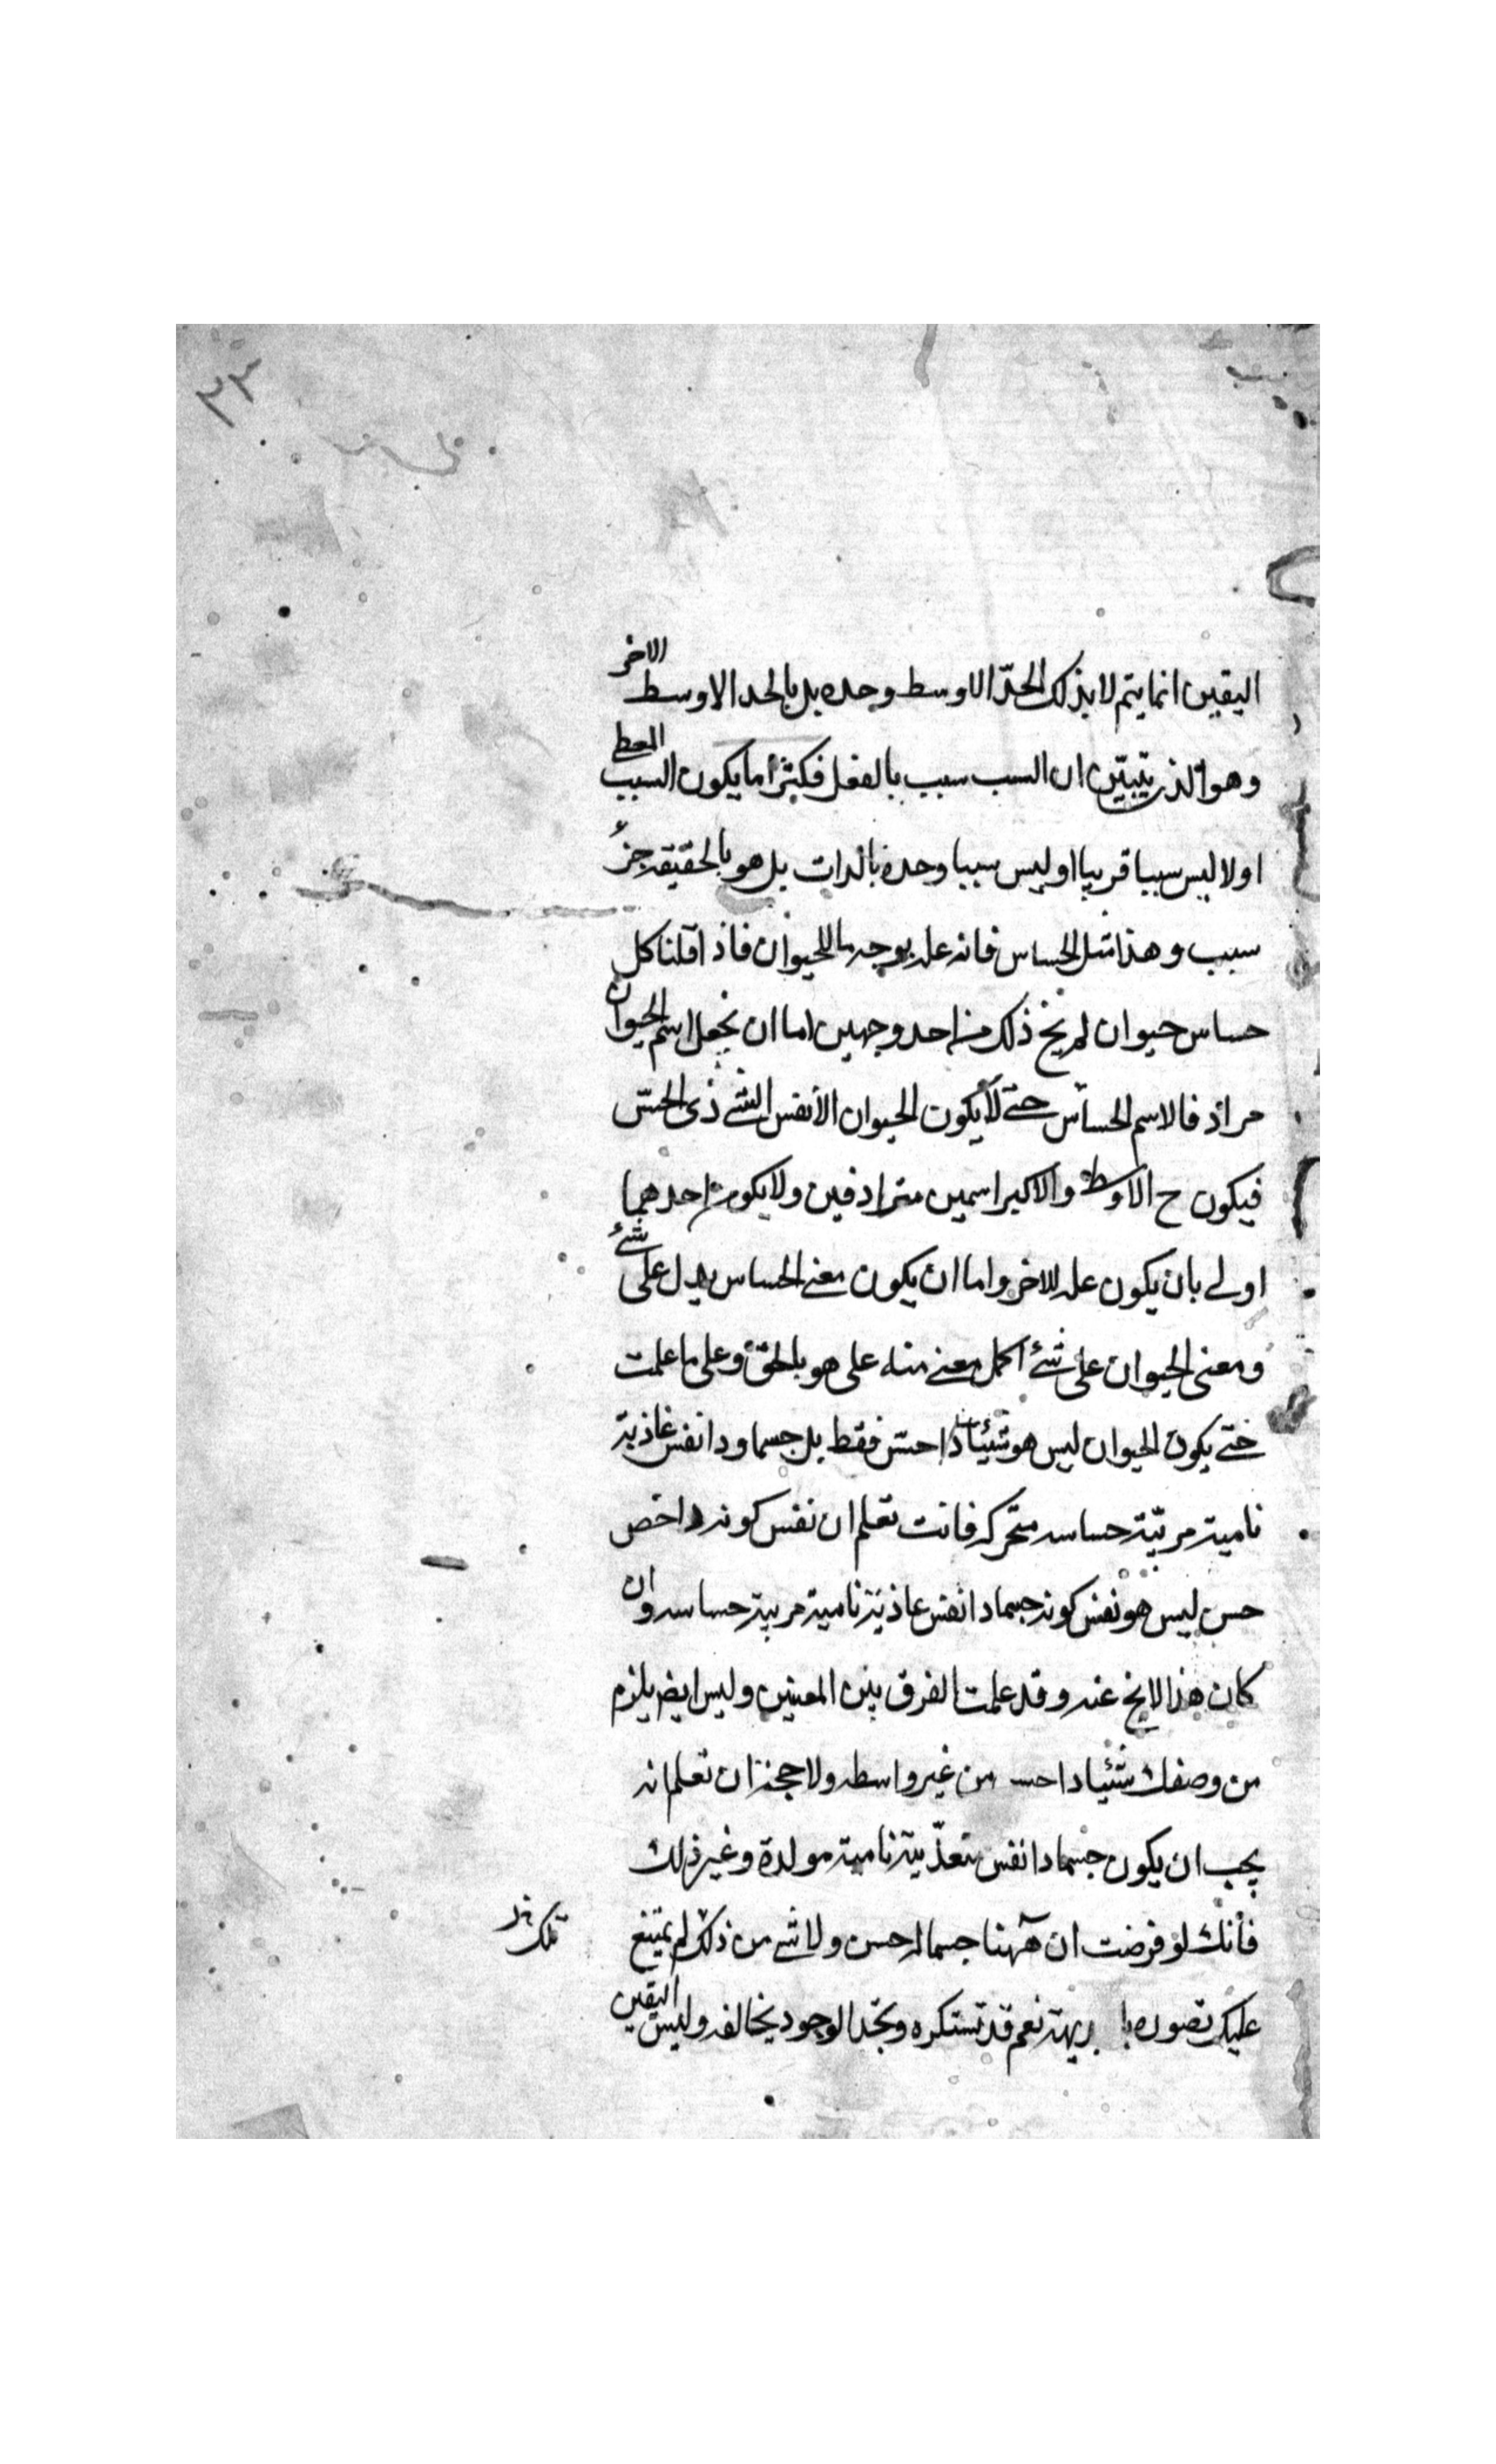 ٣٣
اليقين انما يتم لا بذلك الحدّ الاوسط وحده بل بالحد الاوسط الاخر
وهو الذى يتبيّن ان السبب سبب بالفعل فكثيرا ما يكون السبب المعطى
اولا ليس سببا قريبا او ليس سببا وحده بالذات بل هو بالحقيقه جزء
سبب وهذا مثل الحساس فانه عله بوجه ما للحيوان فاذا قلنا كل
حساس حيوان لم يخ ذلك من احد وجهين اما ان نجعل اسم الحيوان
مرادفا لاسم الحساس حتى لا يكون الحيوان الا نفس الشئ ذى الحسّ
فيكون ح الاوسط والاكبر اسمين مترادفين ولا يكون احدهما
اولى بان يكون عله للاخر واما ان يكون معنى الحساس يدل على شئ
ومعنى الحيوان على شئ اكمل معنى منه على هو بالحق وعلى ما علمت
حتى يكون الحيوان ليس هو شيئا ذا حسّ فقط بل جسما ودا نفس غاذية
نامية مربّية حساسه متحركه فانت تعلم ان نفس كونه دا خص
حس ليس هو نفس كونه جسما دا نفس غاذية نامية مربية حساسه وان
كان هذا لا يخ عنه وقد علمت الفرق بين المعنيين وليس ايض يلزم
من وصفك شيئا دا حس من غير واسطه ولا حجة ان تعلم انه
يجب ان يكون جسما دا نفس متغذّية نامية مولدة وغير ذلك
فأنك لو فرضت ان ههنا جسما له حس ولا شئ من ذلك لم يمتنع
عليك تصوره با بريهة نعم قد تستكره وتجد الوجود يخالفه وليس اليقين